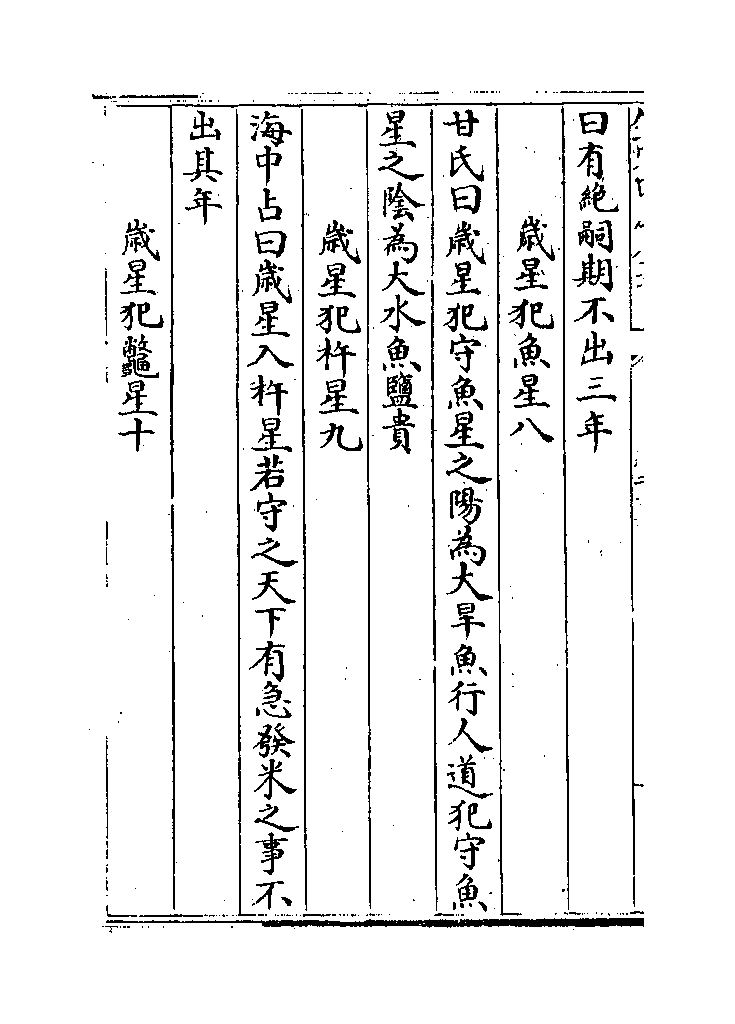 曰有絶嗣期不出三年
歳星犯魚星八
甘氏曰歳星犯守魚星之陽為大旱魚行人道犯守魚
星之陰為大水魚鹽貴
歳星犯杵星九
海中占曰歳星入杵星若守之天下有急發米之事不
出其年
歳星犯鼈星十